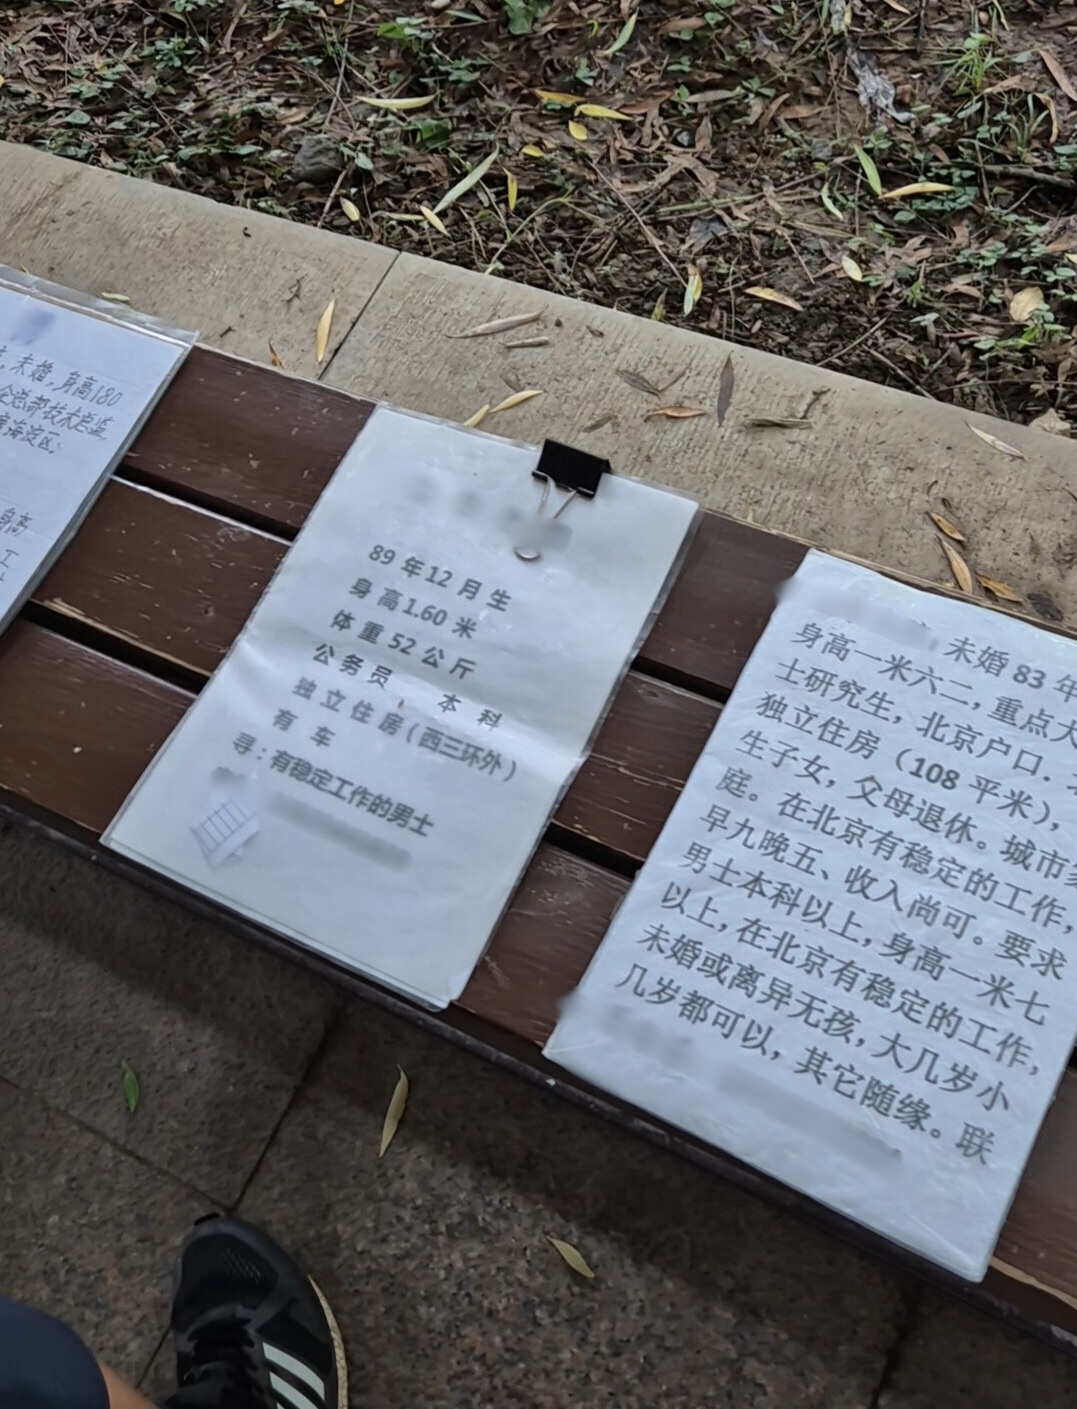 未婚,身高180
企总部技术总监
海淀区。
身高
工
89年12月生
身高1.60米
体重52公斤
公务员, 本科
独立住房(西三环外)
有车
寻:有稳定工作的男士
未婚83年
身高一米六二,重点大
士研究生,北京户口.
独立住房(108平米),
生子女,父母退休。城市
庭。在北京有稳定的工作,
早九晚五、收入尚可。要求
男士本科以上,身高一米七
以上,在北京有稳定的工作,
未婚或离异无孩,大几岁小
几岁都可以,其它随缘。联